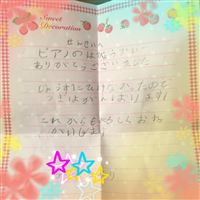 Sweet
Decoration
せんせいへ
ピアノのはっぴょうかい
ありがとうございました
じょうずにひけなかったので
つぎはがんばります
これからもよろしくおね
がいします